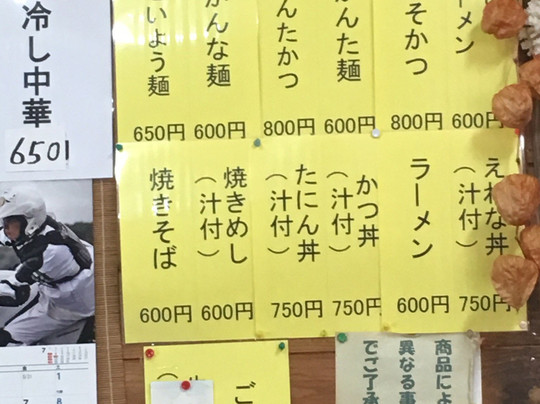 冷し中華
6501
ーメン
600円
そかつ
800円
んた麺
600円
んたかつ
800円
んな麺
600円
いよう麺
650円
えれな丼
（汁付）
750円
ラーメン
600円
かつ丼
（汁付）
750円
たにん丼
（汁付）
750円
焼きめし
（汁付）
600円
焼きそば
600円
商品によ
異なる事
でご了承
ご
7
1
7
8